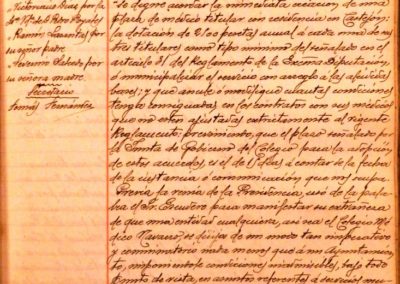 Victoriano Arias por la
Sra. Vda. de Pedro Poyales
Ramón Lacantas por
su señor padre
Severino Salcedo por
su señora madre
Secretario
Tomás Fernández
se digne acordar la inmediata creación de una
plaza de médico titular con residencia en Castejón:
la dotación de 3500 pesetas anual á cada uno de no
tres titulares como tipo mínimo del señalado en el
artículo 31 del Reglamento de la Excma. Diputación,
ó municipalizar el servicio con arreglo á las aludidas
bases; y que anule ó modifique cuantas condiciones
tenga consignadas en los contratos con sus médicos
que no estén ajustadas estrictamente al vigente
Reglamento, previniendo, que el plazo señalado por
la Junta de Gobierno del Colegio para la adopción
de estos acuerdos es el de 15 días á contar de la fecha
de la instancia ó comunicación que nos ocupa.
Previa la venia de la Presidencia, usó de la pala
bra el Sr. Escudero para manifestar su extrañeza
de que una entidad cualquiera, así sea el Colegio Mé
dico Navarro, se dirija de un modo tan imperativo
y conminatorio nada menos que á un Ayuntamien
to, imponiendole condiciones inadmisibles, bajo todo
punto de vista, en asuntos referentes á servicios mu